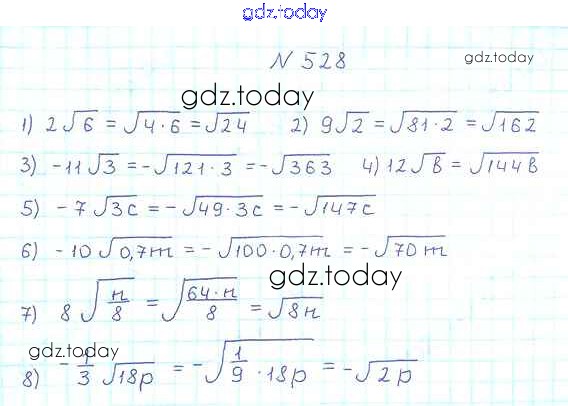 gdz.today
N 528
gdz.today
gdz.today
1) 2√6 = √4·6 = √24 2) 9√2 = √81·2 = √162
3) -11√3 = -√121·3 = -√363 4) 12√в = √144в
5) -7√3c = -√49·3c = -√147c
6) -10√0,7m = -√100·0,7m = -√70m
gdz.today
7) 8√н/8 = √64·н/8 = √8н
gdz.today
8) -1/3√18p = -√1/9·18p = -√2p